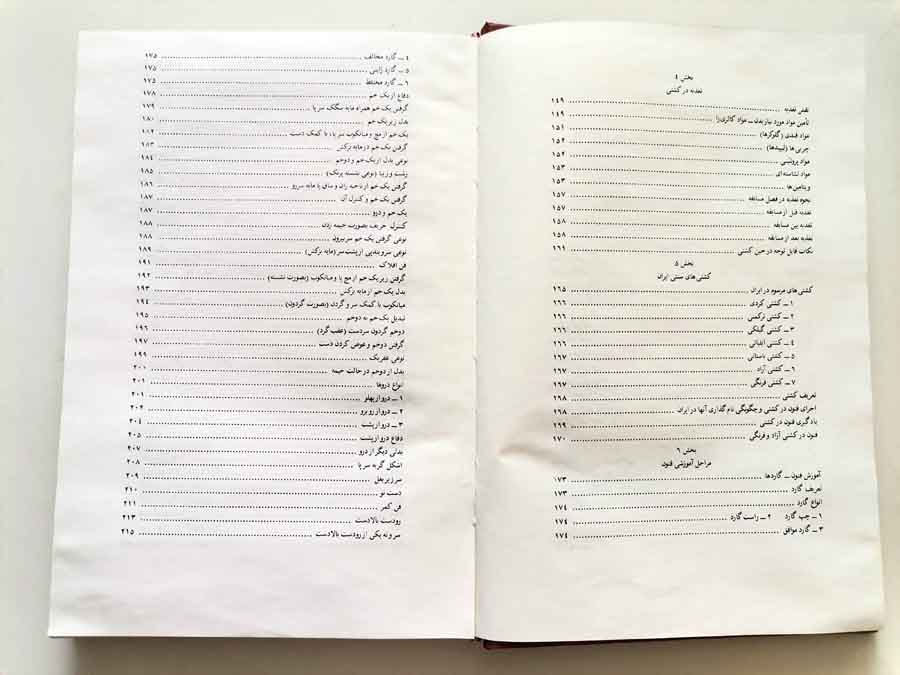 بخش ٤
تغذیه در کشتی
نقش تغذیه ۱٤۹
تأمین مواد مورد نیاز بدن ــ مواد کالری‌زا ۱٤۹
مواد قندی (گلوکزها) ۱۵۱
چربی‌ها (لیپیدها) ۱۵۲
مواد پروتئینی ۱۵۲
مواد نشاسته‌ای ۱۵۳
ویتامین‌ها ۱۵۳
نحوه تغذیه در فصل مسابقه ۱۵۷
تغذیه قبل از مسابقه ۱۵۷
تغذیه بین مسابقه ۱۵۸
تغذیه بعد از مسابقه ۱۵۸
نکات قابل توجه در حین کشتی ۱٦۱
بخش ۵
کشتی های سنتی ایران
کشتی های مرسوم در ایران ۱٦۵
۱ ــ کشتی کردی ۱٦٦
۲ ــ کشتی ترکمنی ۱٦٦
۳ ــ کشتی گیلکی ۱٦٦
٤ ــ کشتی ۱٦٦
۵ ــ کشتی باستانی ۱٦۷
٦ ــ کشتی آزاد ۱٦۷
۷ ــ کشتی فرنگی ۱٦۷
تعریف کشتی ۱٦۸
اجرای فنون در کشتی و چگونگی نام گذاری آنها در ایران ۱٦۸
یادگیری فنون در کشتی ۱٦۹
فنون در کشتی آزاد و فرنگی ۱۷۰
بخش ٦
مراحل آموزشی فنون
آموزش فنون ــ گاردها ۱۷۳
تعریف گارد ۱۷۳
انواع گارد
۱ ــ چپ گارد ۲ ــ راست گارد ۱۷٤
۳ ــ گارد موافق ۱۷٤
٤ ــ گارد مخالف ۱۷۵
۵ ــ گارد ژاپنی ۱۷۵
٦ ــ گارد مختلط ۱۷۵
دفاع از یک خم ۱۷۸
گرفتن یک خم همراه مایه سگک سر پا ۱۷۹
بدل زیر یک خم ۱۸۰
یک خم از مچ و میانکوب سر پا، با کمک دست ۱۸۲
گرفتن یک خم در مایه برکش ۱۸۳
نوعی بدل از یک خم و دوخم ۱۸٤
پشت و زیبا (نوعی نشسته پرتک) ۱۸۵
گرفتن یک خم از ناحیه ران و ساق با مایه سررو ۱۸٦
گرفتن یک خم و کنترل آن ۱۸۷
یک خم و درو ۱۸۷
کنترل حریف بصورت خیمه زدن ۱۸۸
نوعی گرفتن یک خم سر بیرون ۱۸۸
نوعی سروبندپی از پشت سر (مایه برکش) ۱۸۹
فن افلاک ۱۹۱
گرفتن زیر یک خم از مچ پا و میانکوب (بصورت نشسته) ۱۹۲
بدل یک خم از مایه برکش ۱۹۳
میانکوب با کمک سر و گردن (بصورت گردون) ۱۹٤
تبدیل یک خم به دوخم ۱۹۵
دوخم گردون سردست (عقب گرد) ۱۹٦
گرفتن دوخم و عوض کردن دست ۱۹۷
نوعی عقربک ۱۹۹
بدل از دوخم در حالت خیمه ۲۰۰
انواع دروها ۲۰۱
۱ ــ درو از پهلو ۲۰۱
۲ ــ درو از روبرو ۲۰۲
۳ ــ درو از پشت ۲۰٤
دفاع درو از پشت ۲۰۵
بدلی دیگر از درو ۲۰۷
اشکل گربه سر پا ۲۰۸
سر زیر بغل ۲۰۹
دست تو ۲۱۰
فن کمر ۲۱۱
رودست بالادست ۲۱۳
سر و ته یکی از رودست بالادست ۲۱۵